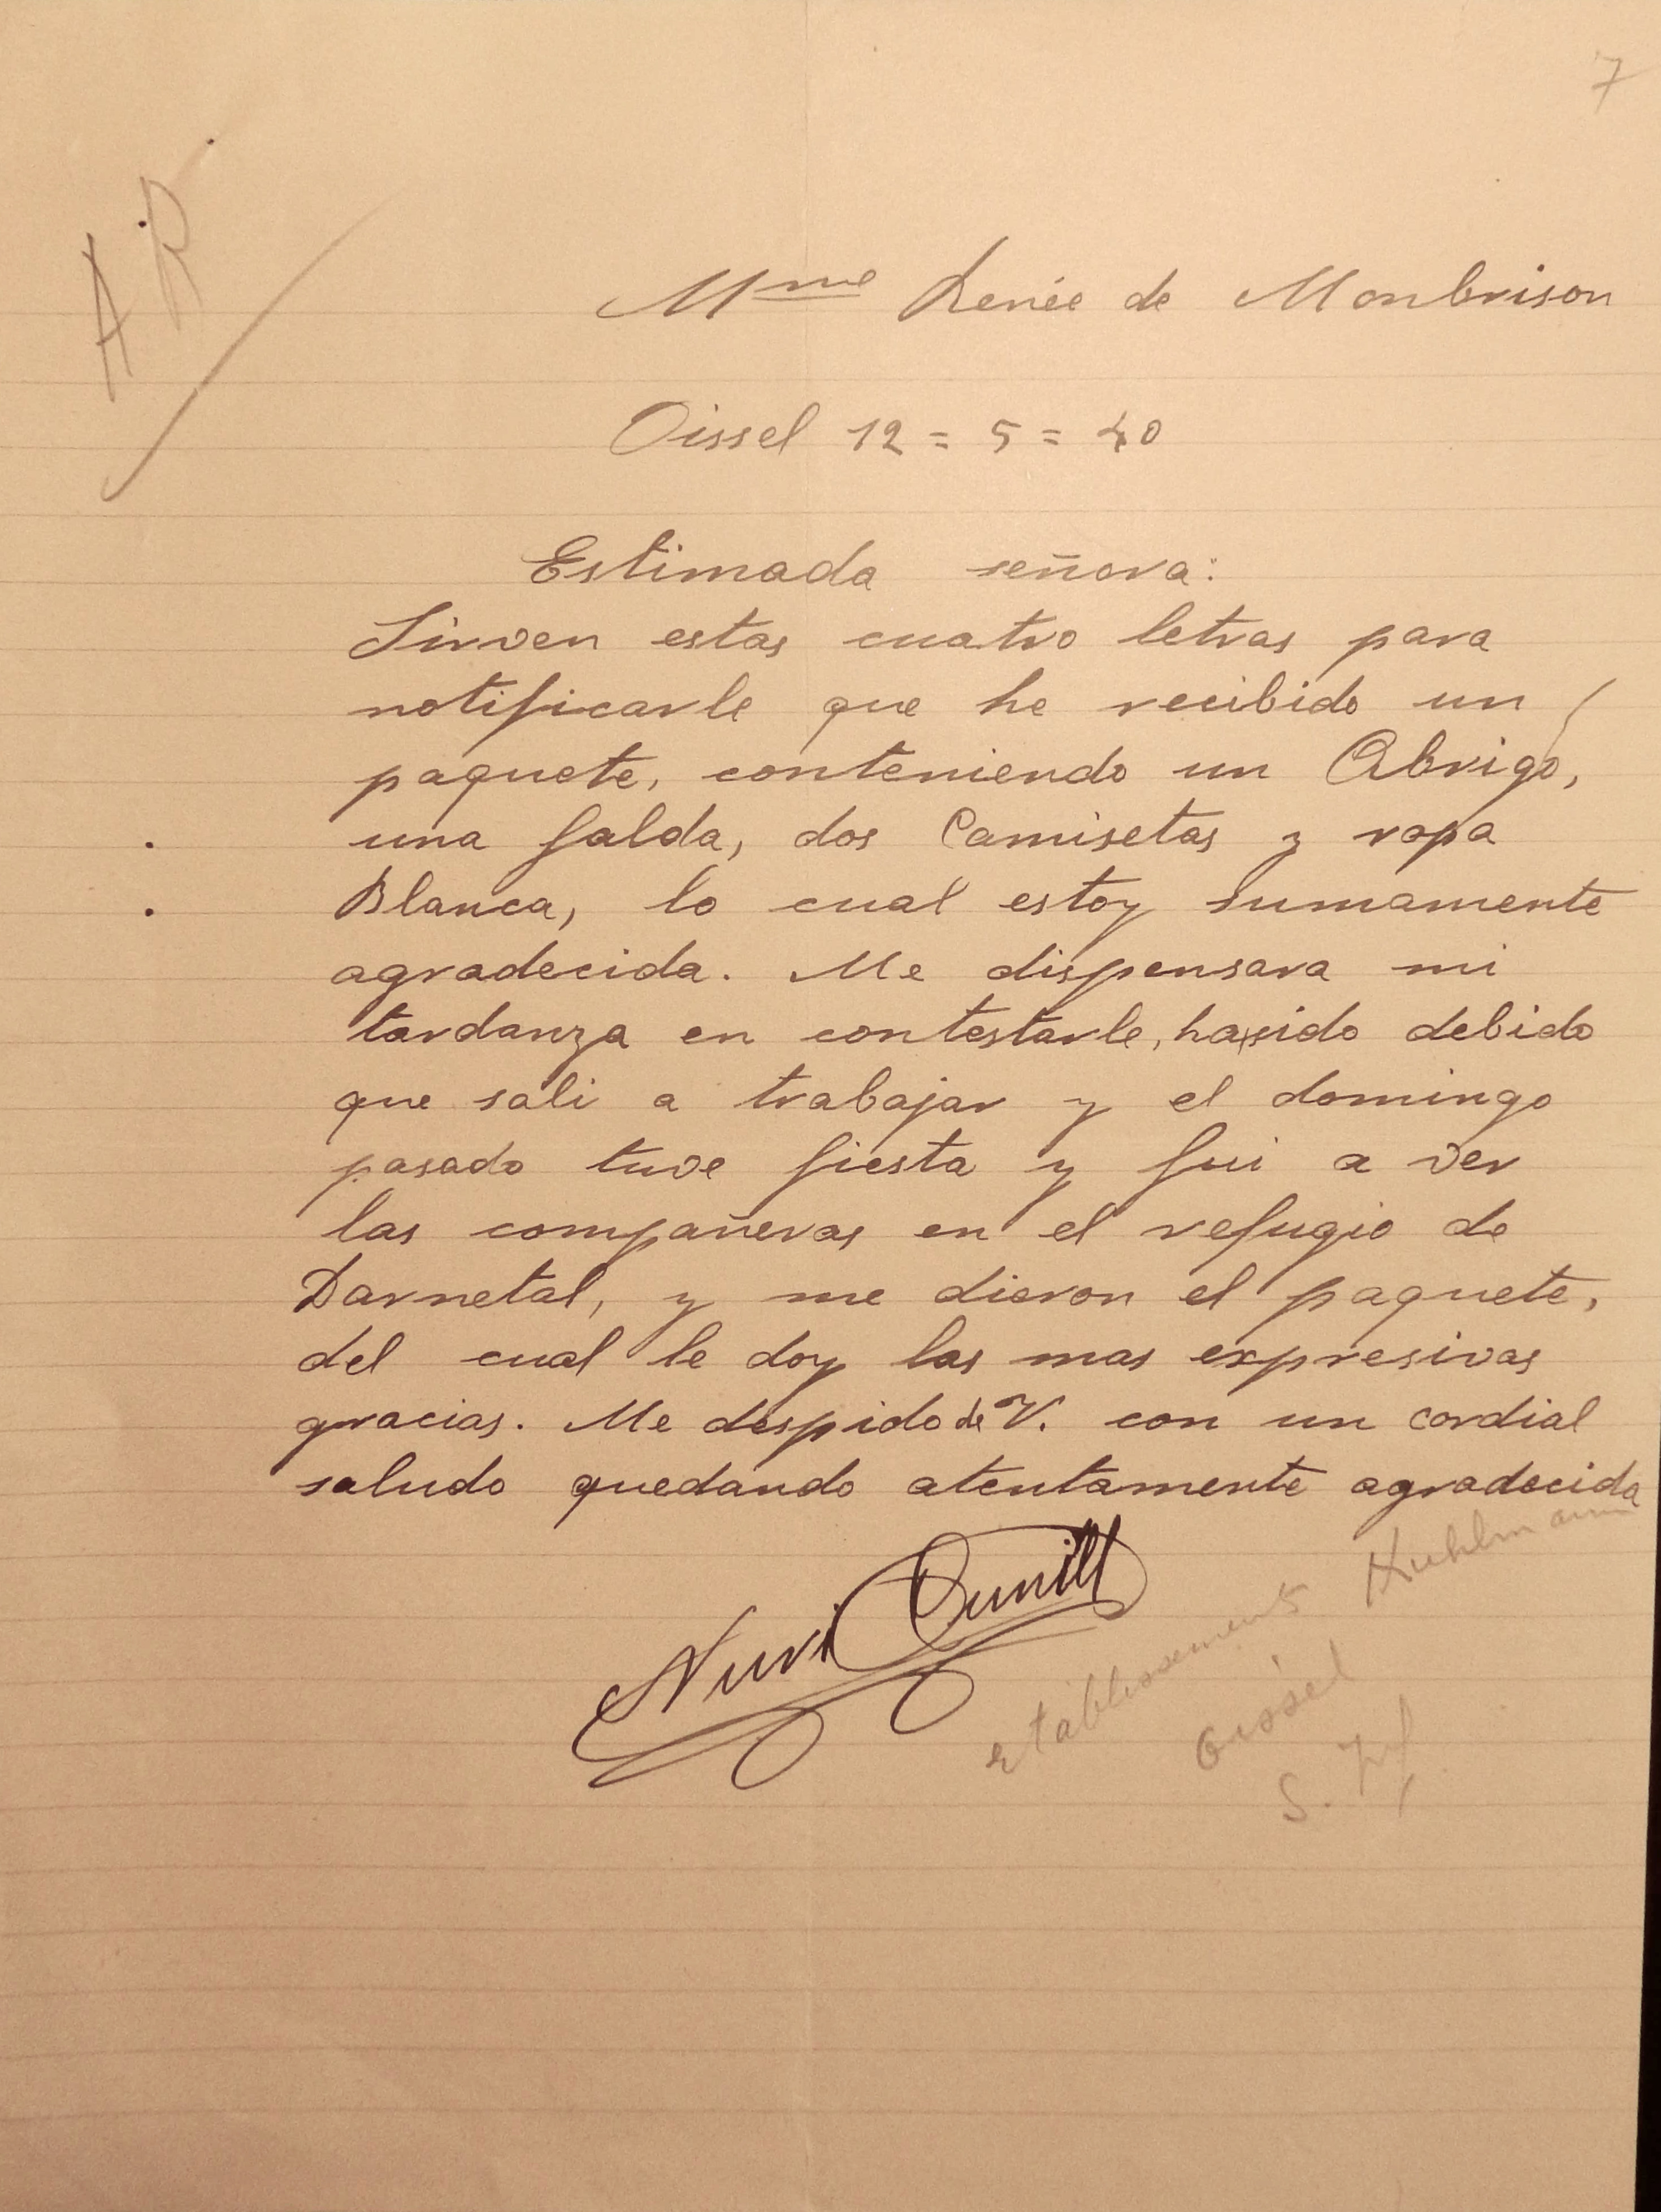 7
A R
Mme Renée de Monbrison
Oissel 12 = 5 = 40
Estimada señora:
Sirven estas cuatro letras para
notificarle que he recibido un
paquete, conteniendo un Abrigo,
una falda, dos Camisetas y ropa
Blanca, lo cual estoy sumamente
agradecida. Me dispensara mi
tardanza en contestarle, ha sido debido
que sali a trabajar y el domingo
pasado tuve fiesta y fui a ver
las compañeras en el refugio de
Darnetal, y me dieron el paquete,
del cual le doy las mas expresivas
gracias. Me despido de V. con un cordial
saludo quedando atentamente agradecida
Nuri Cunill
etablissements Kuhlmann
Oissel
S.